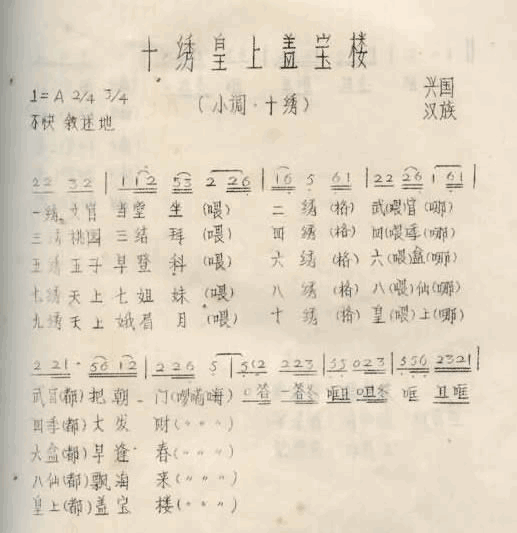 十绣皇上盖宝楼
1=A 2/4 3/4 (小调·十绣) 兴国
不快 叙述地 汉族
22 32 | 112 53 2 226 | 16 5 61 | 22 26 1 61 |
一绣文官当堂坐(喂) 二绣(格)武(喂)官(哪)
三绣桃园三结拜(喂) 四绣(格)四(喂)季(哪)
五绣五子早登科(喂) 六绣(格)六(喂)盒(哪)
七绣天上七姐妹(喂) 八绣(格)八(喂)仙(哪)
九绣天上娥眉月(喂) 十绣(格)皇(喂)上(哪)
2 21· 56 12 | 2 26 5 | 512 223 | 55 023 | 556 2321 |
武官(都)把朝门(啰嗬嗨)
四季(都)大发财(〃〃〃)
六盒(都)早逢春(〃〃〃)
八仙(都)飘海来(〃〃〃)
皇上(都)盖宝楼(〃〃〃)